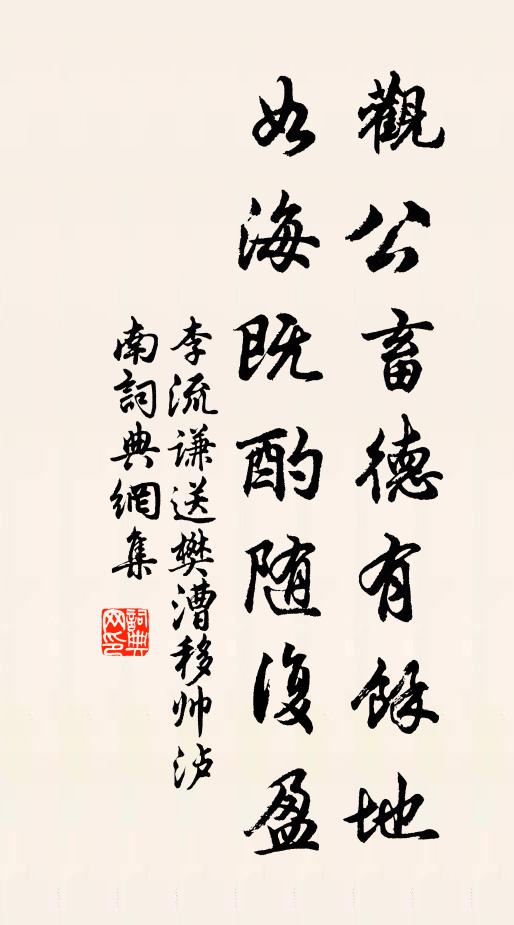 觀公畜德有餘地
如海既酌随復盈
李流謙送樊漕移帅泸
南詞典網集
詞典
网印